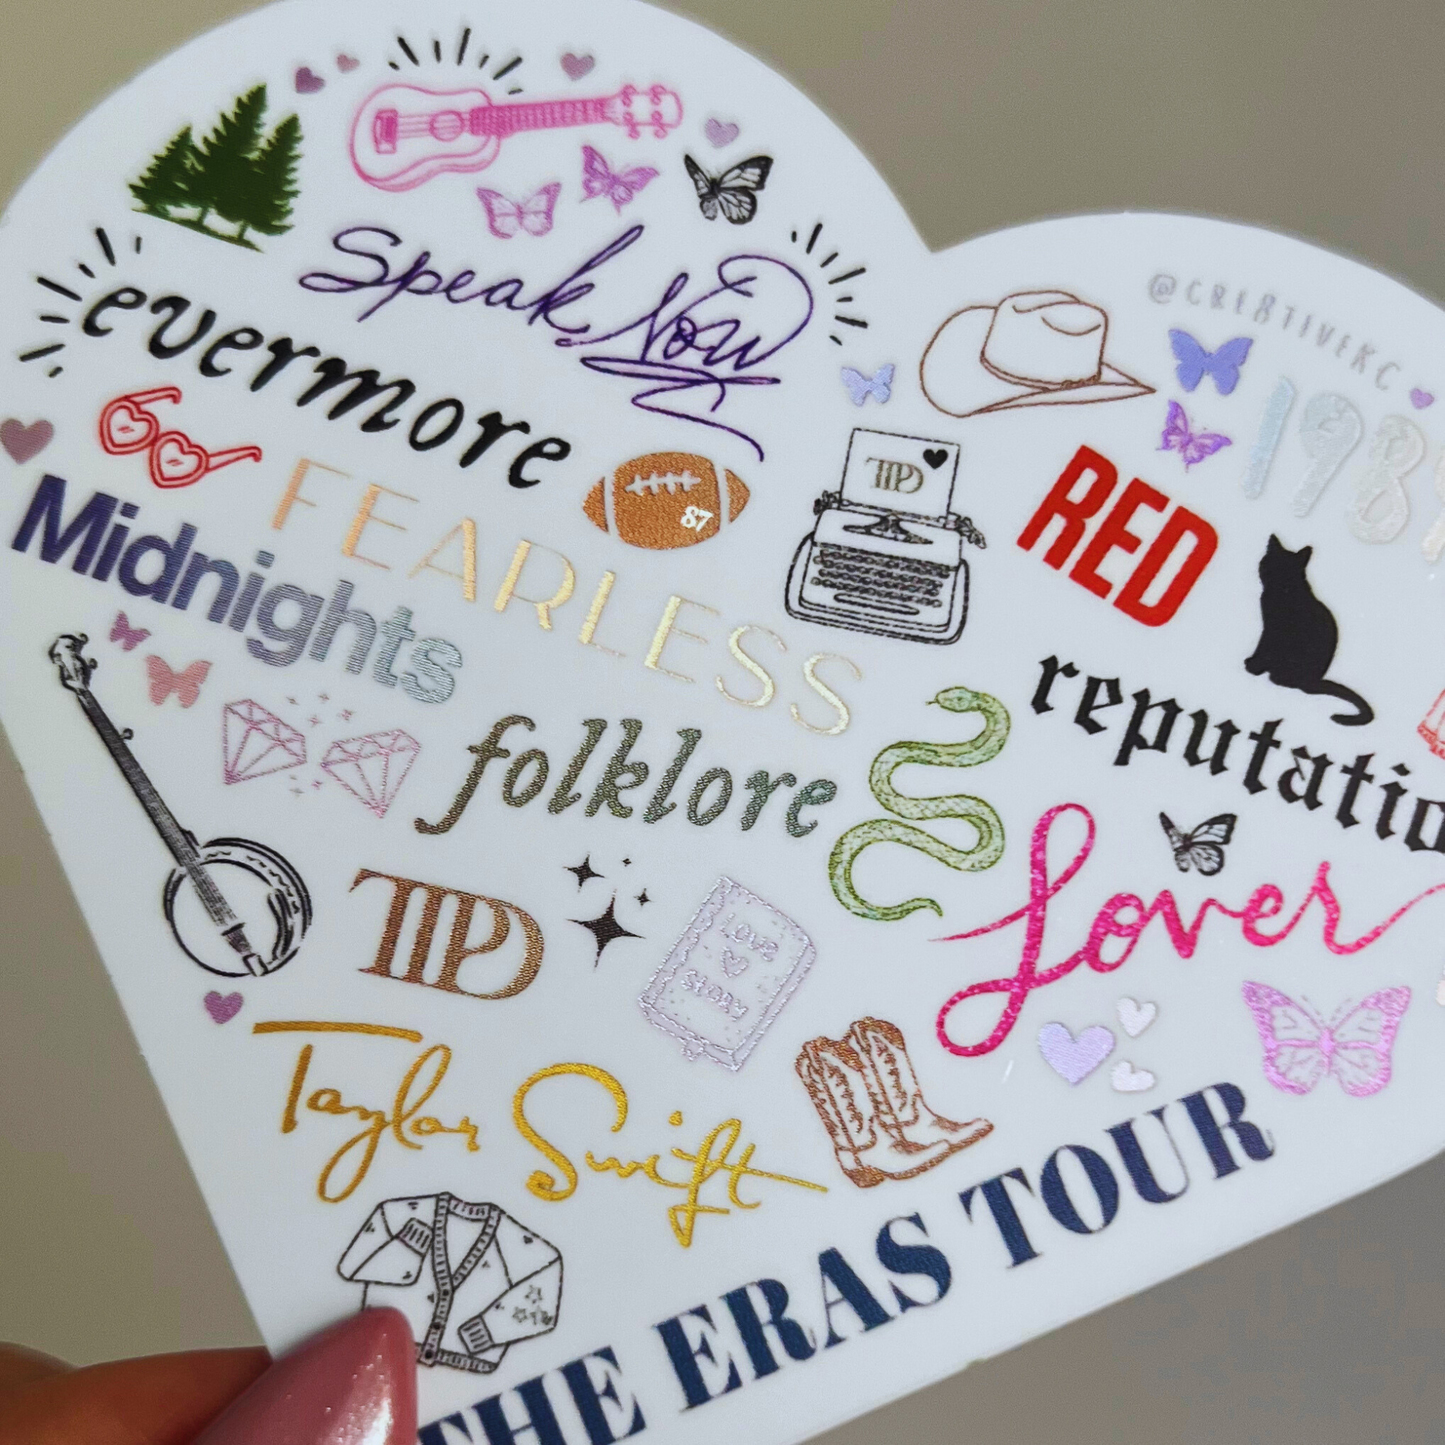 Speak Now
@CRE8TIVEKC
evermore
1989
FEARLESS
87
TTPD
RED
Midnights
reputatio
folklore
Lover
TTPD
LOVE
STORY
Taylor Swift
THE ERAS TOUR